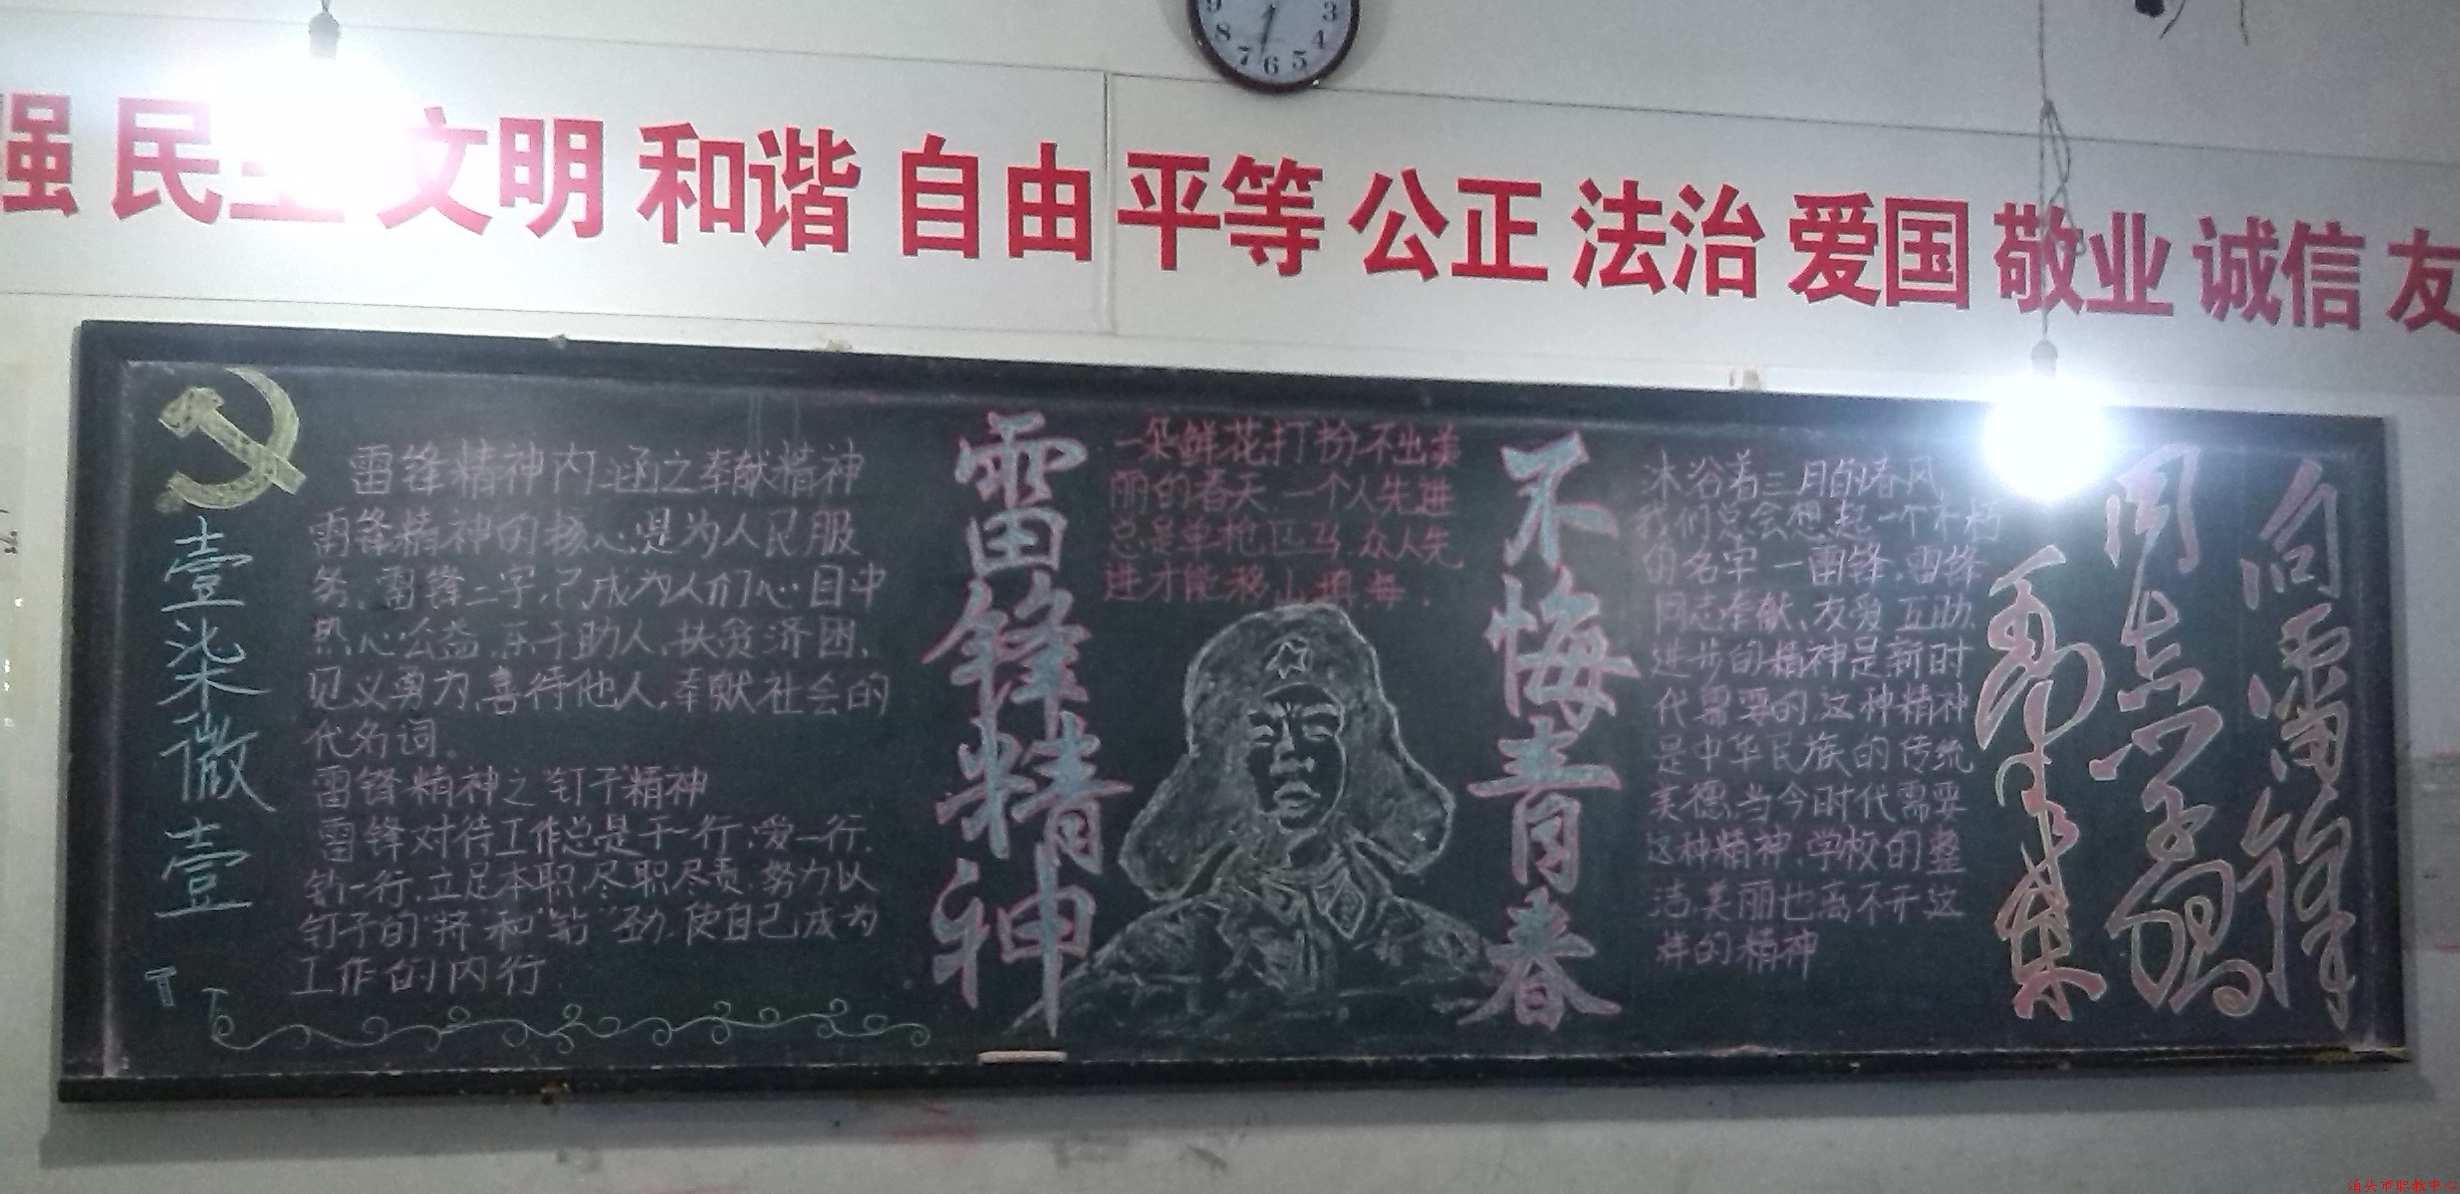 9 3
8 4
7 6 5
强 民主 文明 和谐 自由 平等 公正 法治 爱国 敬业 诚信 友
壹柒微壹
雷锋精神内涵之奉献精神
雷锋精神的核心是为人民服
务。雷锋二字,已成为人们心目中
热心公益,乐于助人,扶贫济困,
见义勇为,喜得他人,奉献社会的
代名词。
雷锋精神之“钉子”精神
雷锋对待工作总是干一行,爱一行,
钻一行,立足本职,尽职尽责,努力以
钉子的“挤”和“钻”劲,使自己成为
工作的内行
雷锋精神
一朵鲜花打扮不出美
丽的春天,一个人先进
总是单枪匹马,众人先
进才能移山填海.
不悔青春
沐浴着三月的春风
我们总会想起一个不朽
的名字—雷锋,雷锋
同志奉献、友爱、互助、
进步的精神是新时
代需要的,这种精神
是中华民族的传统
美德,当今时代需要
这种精神,学校的整
洁、美丽也离不开这
样的精神
向雷锋
同志学习
毛泽东
泊头市职教中心